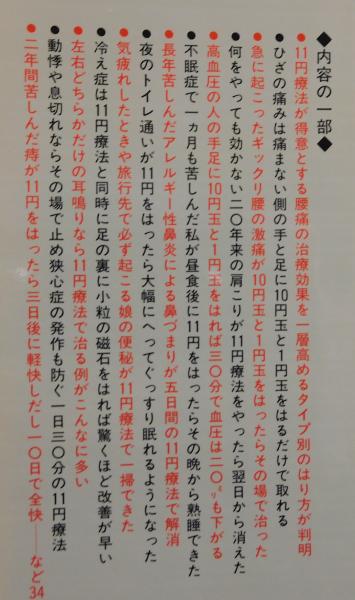 ◆内容の一部◆
●11円療法が得意とする腰痛の治療効果を一層高めるタイプ別のはり方が判明
●ひざの痛みは痛まない側の手と足に10円玉と1円玉をはるだけで取れる
●急に起こったギックリ腰の激痛が10円玉と1円玉をはったらその場で治った
●何をやっても効かない二〇年来の肩こりが11円療法をやったら翌日から消えた
●高血圧の人の手足に10円玉と1円玉をはれば三〇分で血圧は二〇ミリも下がる
●不眠症で一ヵ月も苦しんだ私が昼食後に11円をはったらその晩から熟睡できた
●長年苦しんだアレルギー性鼻炎による鼻づまりが五日間の11円療法で解消
●夜のトイレ通いが11円をはったら大幅にへってぐっすり眠れるようになった
●気疲れしたときや旅行先で必ず起こる娘の便秘が11円療法で一掃できた
●冷え症は11円療法と同時に足の裏に小粒の磁石をはれば驚くほど改善が早い
●左右どちらかだけの耳鳴りなら11円療法で治る例がこんなに多い
●動悸や息切れならその場で止め狭心症の発作も防ぐ一日三〇分の11円療法
●二年間苦しんだ痔が11円をはったら三日後に軽快しだし一〇日で全快――など34